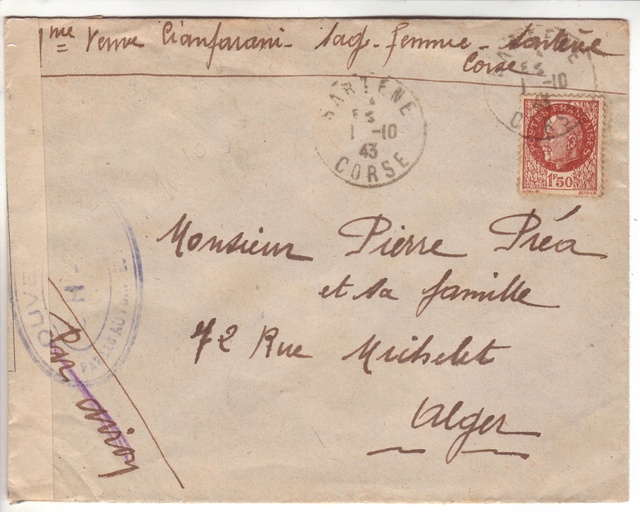 Mme Veuve Cianfarani - Sage-femme - Sartène
Corse
SARTENE
1 -10
43
CORSE
1 -10
POSTES FRANÇAISES
1F50
Monsieur Pierre Préa
et sa famille
72 Rue Michelet
Alger
OUVE
PAR
Par avion